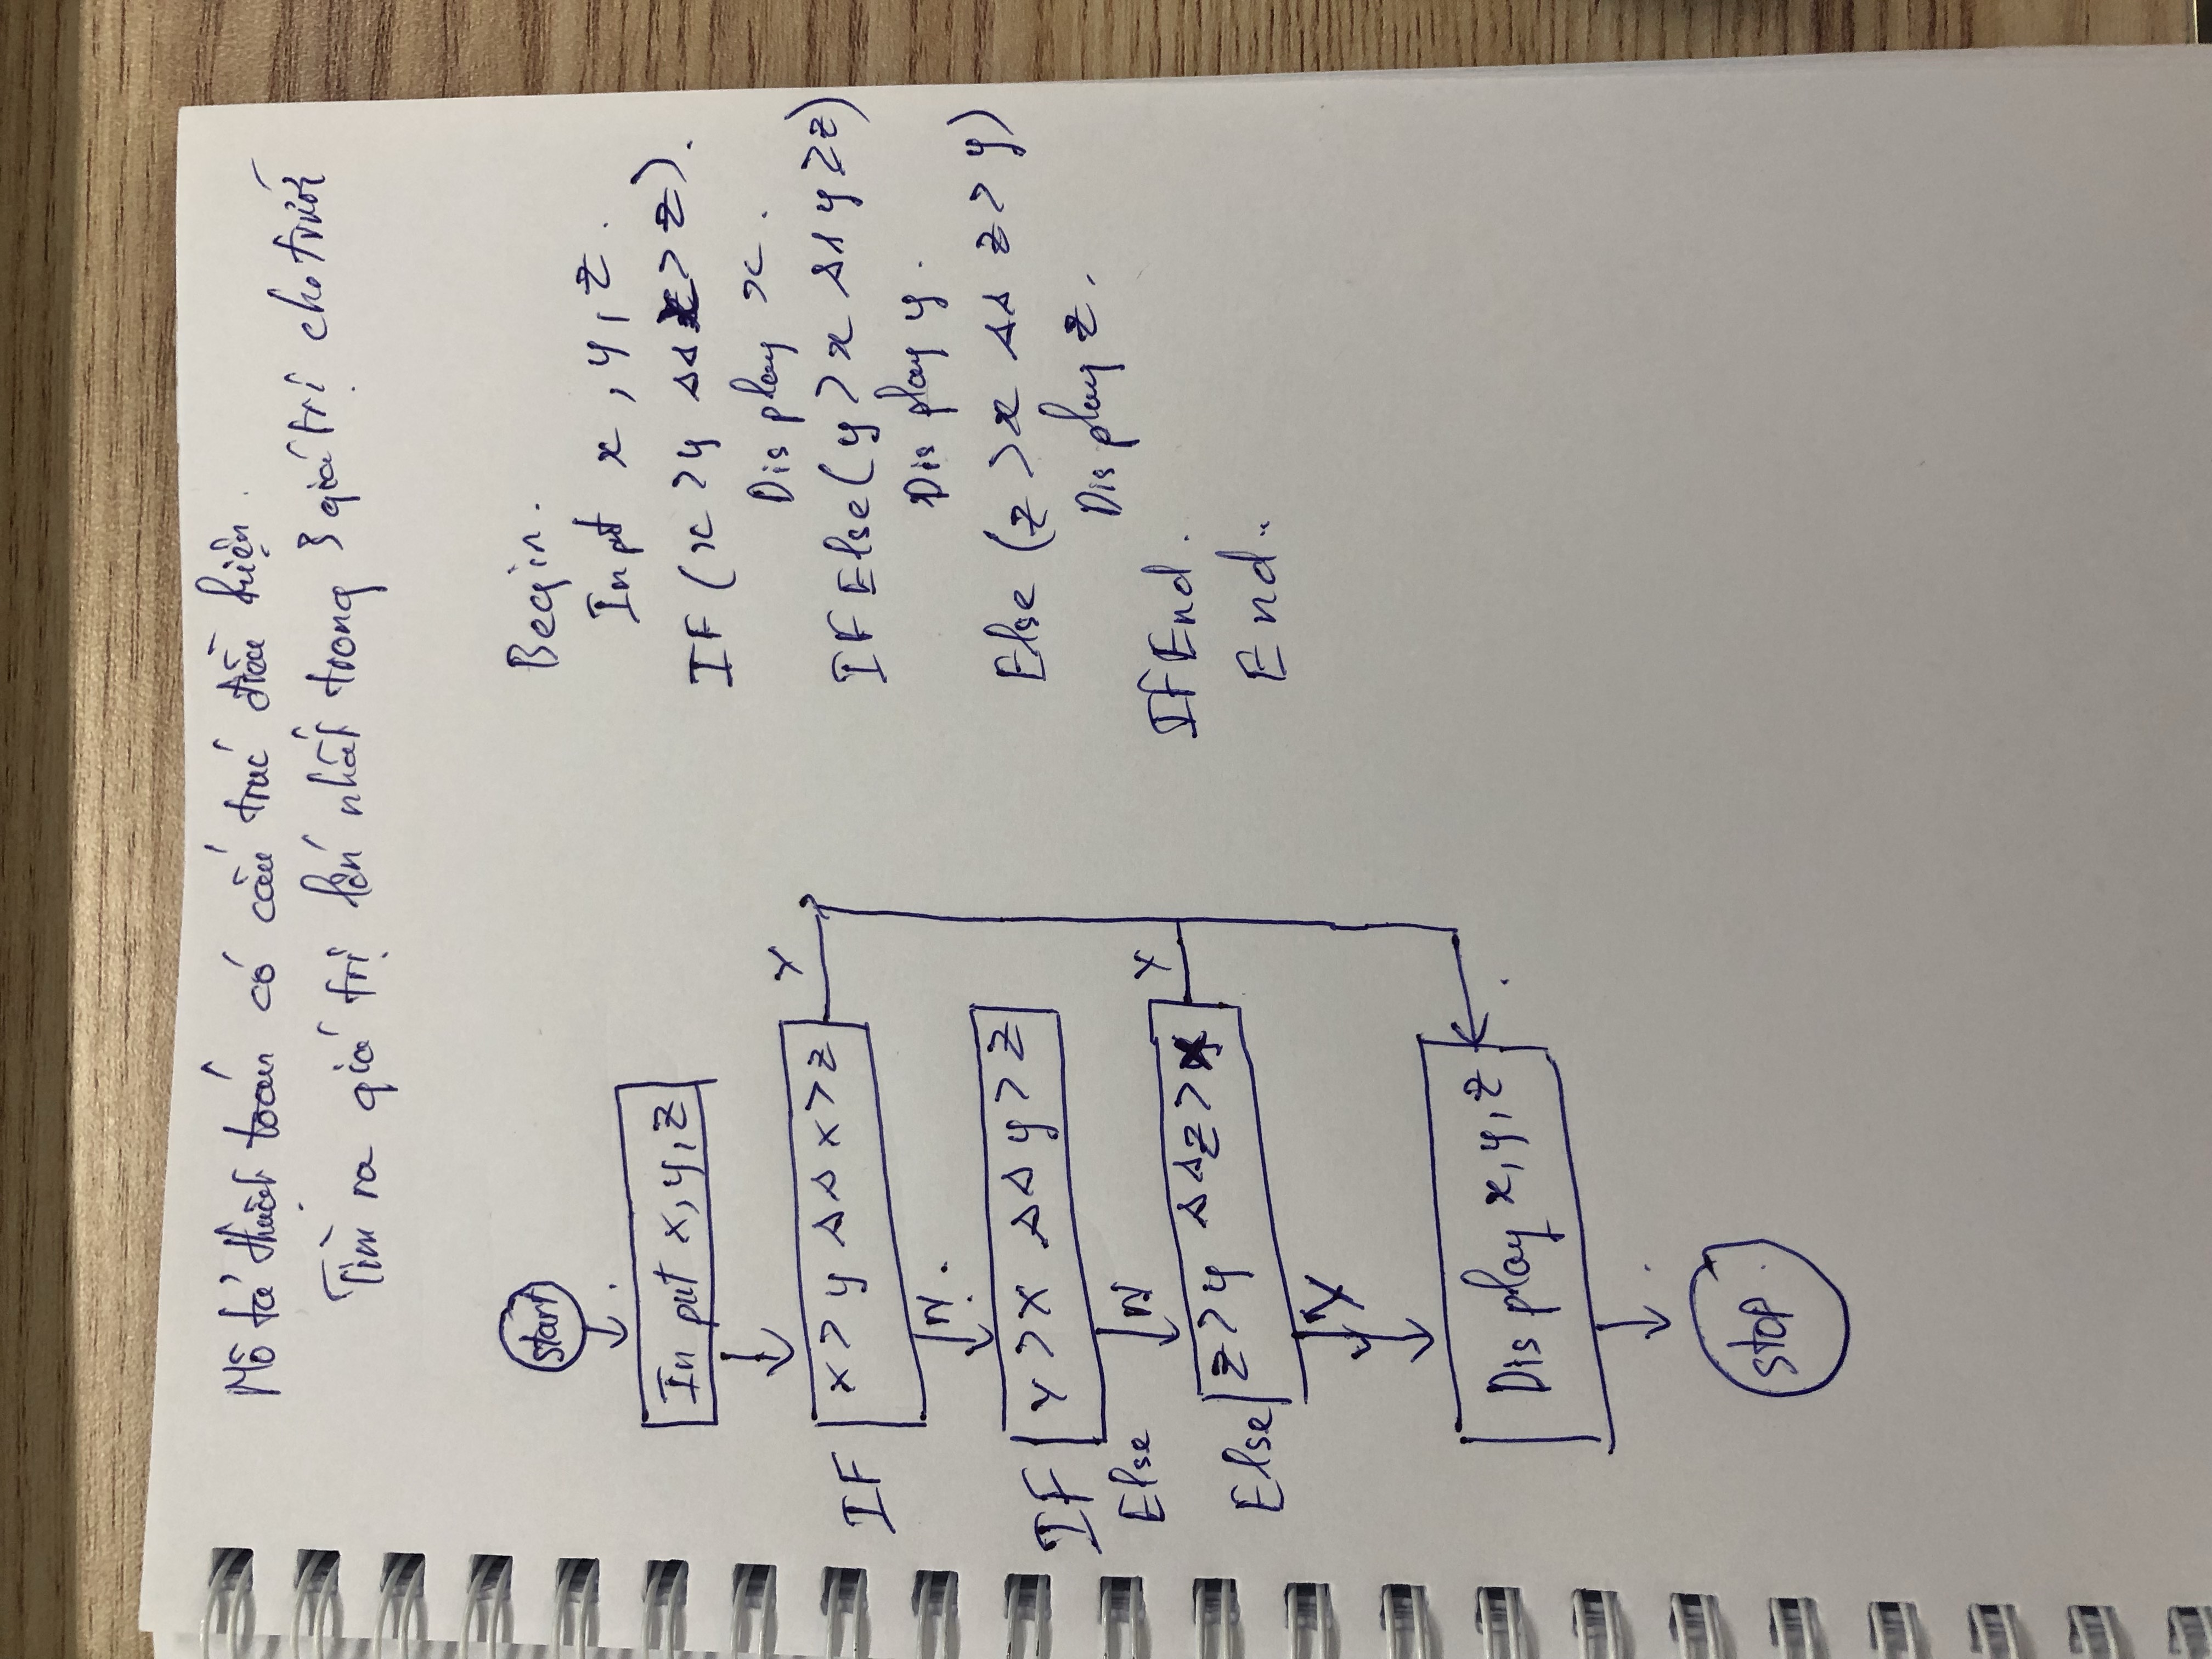 Mô tả thuật toán có cấu trúc điều kiện.
Tìm ra giá trị lớn nhất trong 3 giá trị cho trước
start
In put x, y, z
IF
x > y && x > z
Y
N.
IF
Else
Y > X && y > z
N
Else
z > y && z > x
Y
Y
Display x, y, z
stop
Begin.
Input x, y, z.
IF (x > y && x > z).
Display x.
IF Else (y > x && y > z)
Display y.
Else (z > x && z > y)
Display z.
IF End.
End..